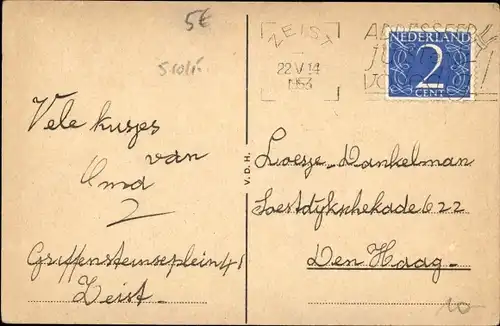 5€
ZEIST
22 V 14
1953
ADRESSEER
NEDERLAND
2
CENT
Vele kusjes
van
Oma
2
Griffensteinseplein 41
Zeist.
V. D. H.
Loesje Dankelman
Soestdijksekade 622
Den Haag.
10